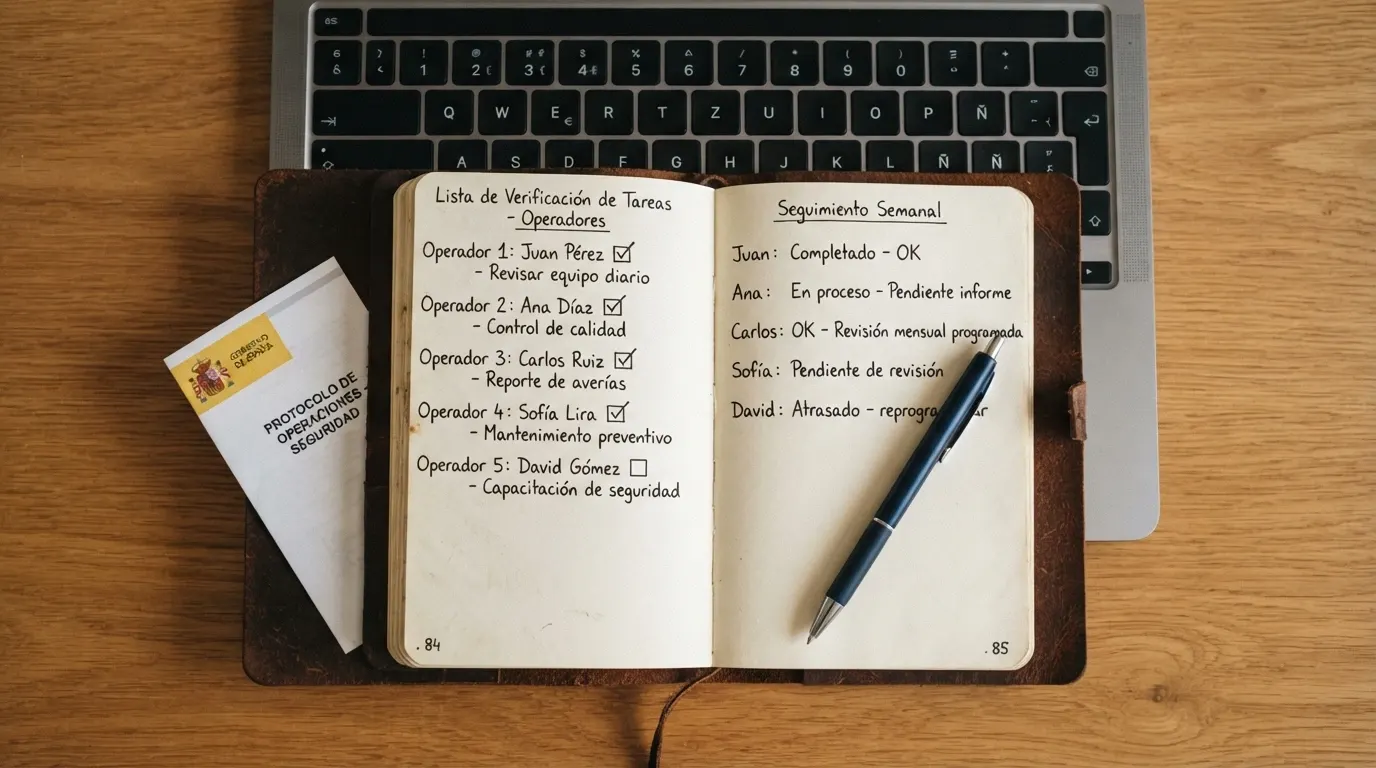 1 2 3 4 5 6 7 8 9 0
Q W E € R T Z U I O P Ñ
A S D F G H J K L Ñ Ñ
PROTOCOLO DE
OPERACIONES -
SEGURIDAD
Lista de Verificación de Tareas
- Operadores
Operador 1: Juan Pérez ☑
- Revisar equipo diario
Operador 2: Ana Díaz ☑
- Control de calidad
Operador 3: Carlos Ruiz ☑
- Reporte de averías
Operador 4: Sofía Lira ☑
- Mantenimiento preventivo
Operador 5: David Gómez ☐
- Capacitación de seguridad
. 84
Seguimiento Semanal
Juan: Completado - OK
Ana: En proceso - Pendiente informe
Carlos: OK - Revisión mensual programada
Sofía: Pendiente de revisión
David: Atrasado -
. 85